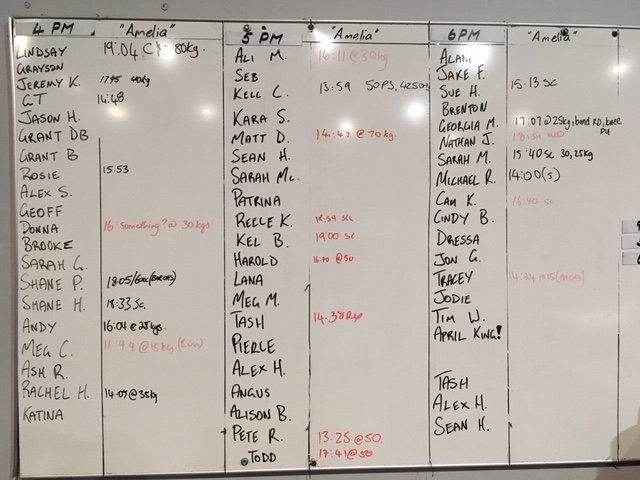 4 PM "Amelia"
LINDSAY 19.04 80kg.
GRAYSON
JEREMY K. 40kg
CT 14:48
JASON H.
GRANT DB
GRANT B
ROSIE 15:53
ALEX S.
GEOFF
DONNA 16:something?@ 30kgs
BROOKE
SARAH G.
SHANE P. 18:05/
SHANE H. 18:33 Sc.
ANDY 16:04 @ 25kgs.
MEG C. @15kg.(Run)
ASH R.
RACHEL H. 14:09@35kg
KATINA
5 PM "Amelia"
ALI M. 16:11@30kg
SEB
KELL C. 13:59 50PS,
KARA S.
MATT D. 14:47 @ 70kg.
SEAN H.
SARAH Mc.
PATRINA
REELE K. 18:59 SC
KEL B. 19:00 SC
HAROLD @50
LANA
MEG M.
TASH 14.38
PIERCE
ALEX H.
ANGUS
ALISON B.
PETE R. 13:25 @50.
TODD 17:41@50
6PM "Amelia"
ALAN
JAKE F.
SUE H. 15:13 SC
BRENTON
GEORGIA M. 17:07@25kg, band RD, knee
PU
NATHAN J.
SARAH M. 15:40 Sc 30,25kg
MICHAEL R. 14:00(s)
CAM K. 16:40 sc
CINDY B.
DRESSA
JON G.
TRACEY 14:24
JODIE
TIM W.
APRIL KING!
TASH
ALEX H.
SEAN H.